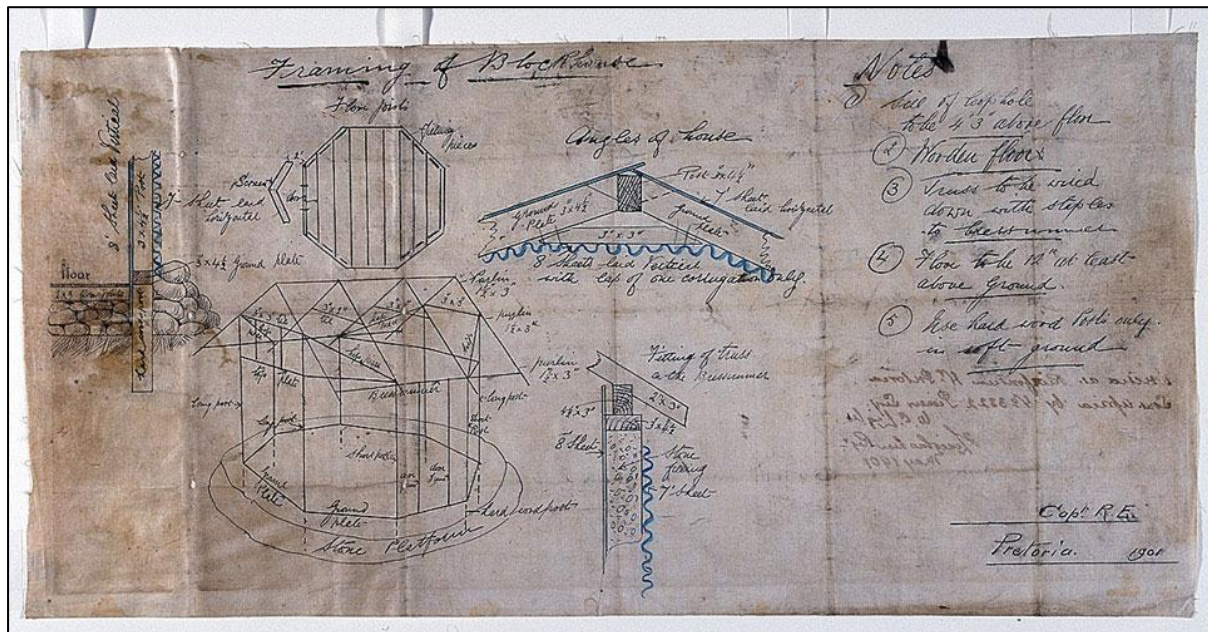 Framing of Blockhouse
Floor joists
Fitting
pieces
Screen
door
7' Sheet laid
horizontal
8' Sheet laid Vertical
3 x 4½ Post
3 x 4½ Ground plate
floor
hard wood
Angles of house
Post 3" x 4½"
7' Sheet
laid horizontal
Ground
Plate
3" x 4½"
ground
plate
3" x 3"
8 Sheets laid Vertical
with lap of one corrugation only.
Purlin
1½ x 3"
3" x 3"
purlin
1½ x 3"
purlin
Top plate
Bressumer
Long post
Long post
Short
Post
Short post
door
door
Ground
Plate
Ground
plate
hard wood post
Stone Platform
Fitting of truss
on the Bressumer
4½" x 3"
2" x 3"
3 x 4½
8' Sheet
Stone
7' Sheet
Notes
① Sill of loophole
to be 4' 3" above floor
② Wooden floors
③ Truss to be wired
down with staples
to bressummer
④ Floor to be 12" at least
above Ground.
⑤ Use hard wood Posts only
in soft ground
May 1901
Capt R.E.
Pretoria. 1901